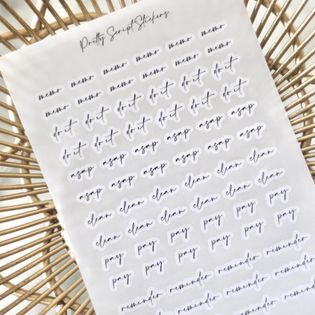 Pretty Script Stickers
memo memo memo memo memo memo
memo memo memo memo memo memo
do it do it do it do it do it do it
do it do it do it do it do it do it
asap asap asap asap asap asap
asap asap asap asap asap asap
clean clean clean clean clean clean
clean clean clean clean clean clean
pay pay pay pay pay pay
pay pay pay pay pay pay
reminder reminder reminder reminder
reminder reminder reminder